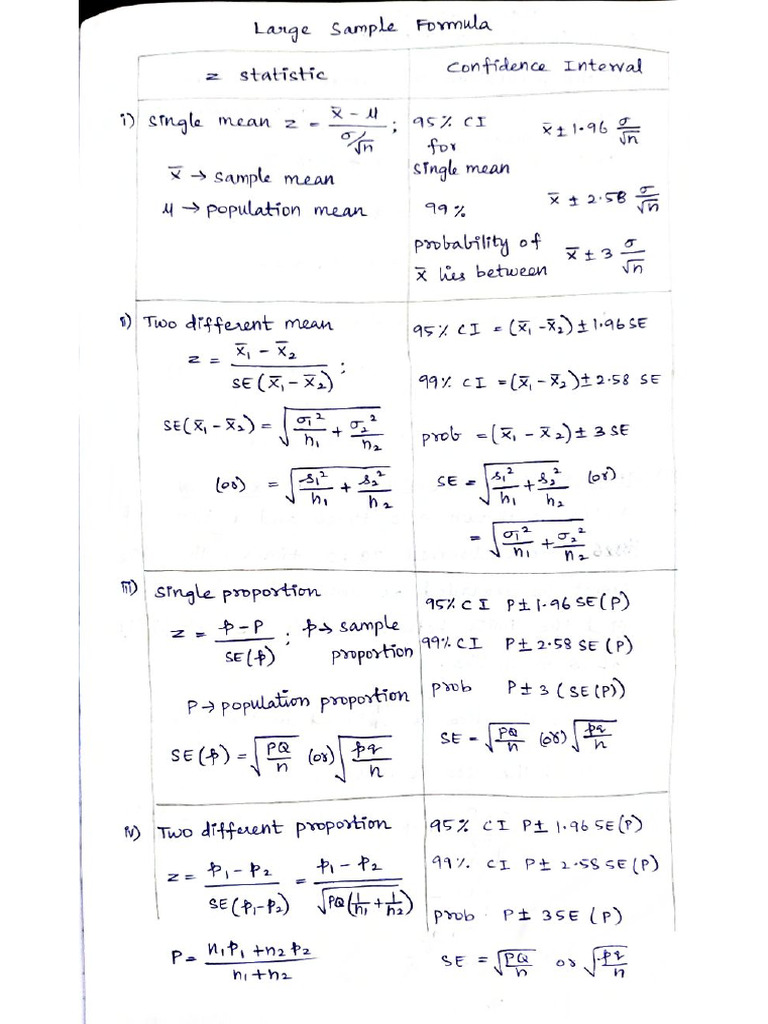 Large Sample Formula
z statistic
Confidence Interval
i) Single mean z = x̄ - μ / σ/√n ;
x̄ → sample mean
μ → population mean
95% CI x̄ ± 1.96 σ/√n
for
single mean
99% x̄ ± 2.58 σ/√n
probability of x̄ ± 3 σ/√n
x̄ lies between
ii) Two different mean
z = x̄₁ - x̄₂ / SE(x̄₁ - x̄₂) ;
SE(x̄₁ - x̄₂) = √(σ₁²/n₁ + σ₂²/n₂)
(or) = √(s₁²/n₁ + s₂²/n₂)
95% CI = (x̄₁ - x̄₂) ± 1.96 SE
99% CI = (x̄₁ - x̄₂) ± 2.58 SE
prob = (x̄₁ - x̄₂) ± 3 SE
SE = √(s₁²/n₁ + s₂²/n₂) (or)
= √(σ₁²/n₁ + σ₂²/n₂)
iii) Single proportion
z = p - P / SE(p) ; p → sample
proportion
P → population proportion
SE(p) = √(PQ/n) (or) √(pq/n)
95% CI P ± 1.96 SE(P)
99% CI P ± 2.58 SE (P)
prob P ± 3 (SE(P))
SE = √(PQ/n) (or) √(pq/n)
iv) Two different proportion
z = p₁ - p₂ / SE(p₁ - p₂) = p₁ - p₂ / √(PQ(1/n₁ + 1/n₂))
P = n₁p₁ + n₂p₂ / n₁ + n₂
95% CI P ± 1.96 SE(P)
99% CI P ± 2.58 SE(P)
prob P ± 3SE (P)
SE = √(PQ/n) or √(pq/n)